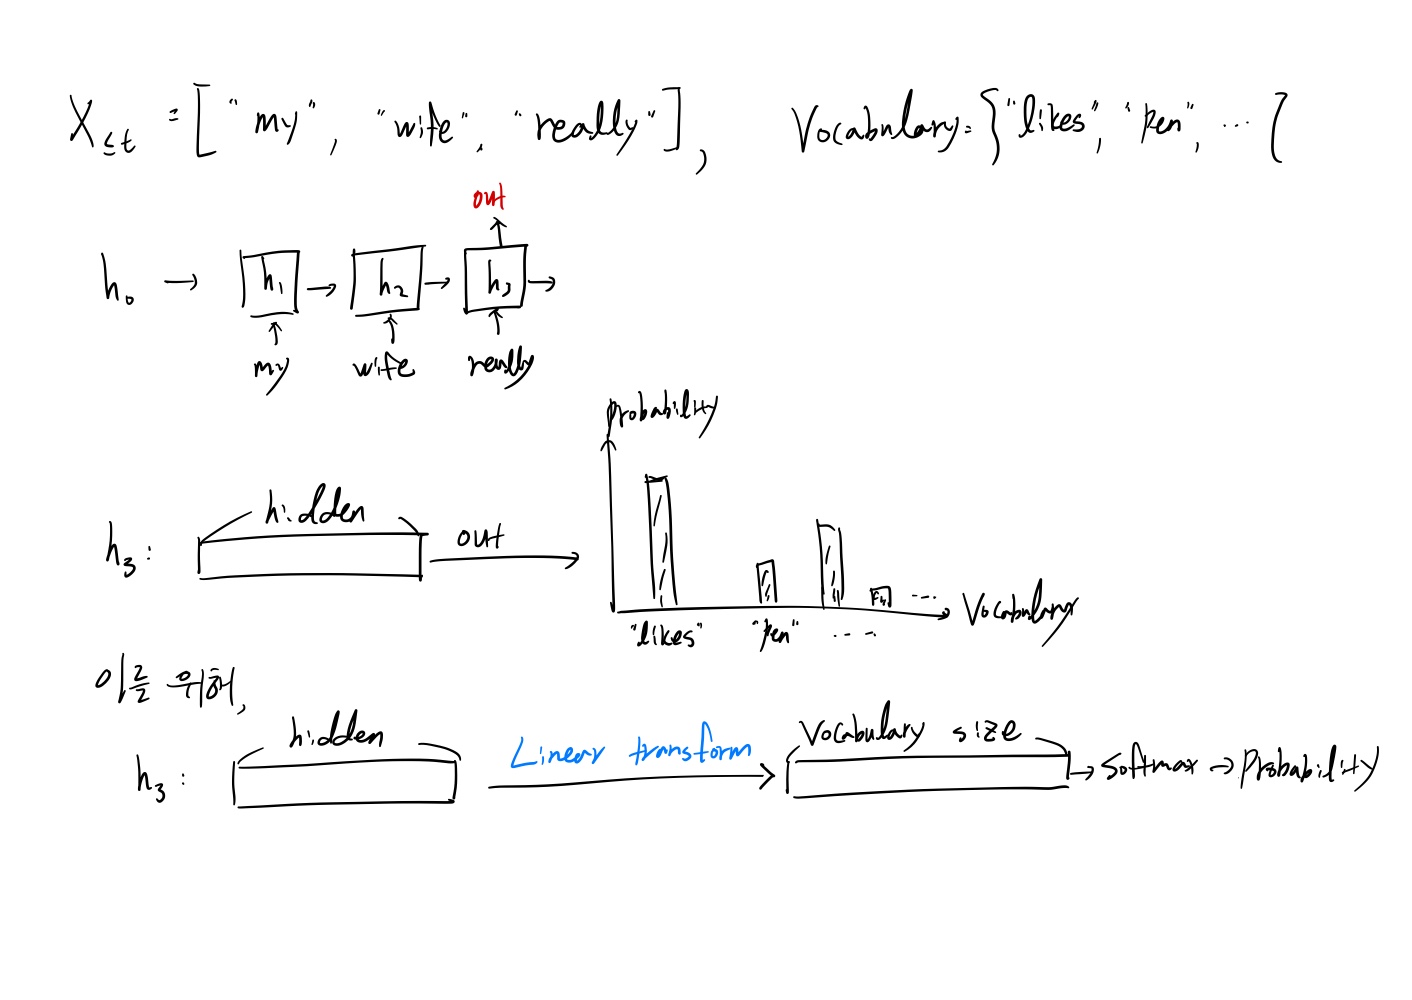 X≤t = ["my", "wife", "really"], Vocabulary = {"likes", "pen", ... {
out
h₀ → h₁ → h₂ → h₃ →
my wife really
probability
h₃: hidden out
"likes" "pen" ... ... Vocabulary
이를 위해,
h₃: hidden Linear transform Vocabulary size → Softmax → Probability